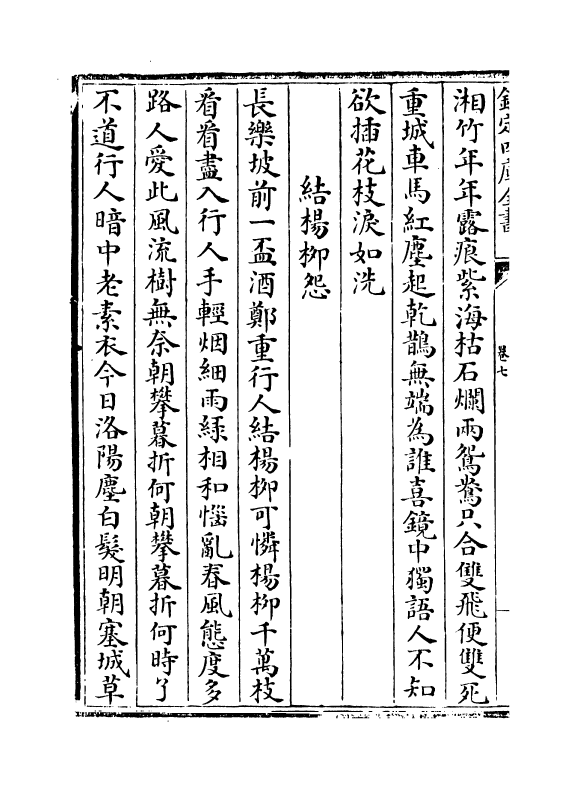 欽定四庫全書
卷七
湘竹年年露痕紫海枯石爛兩鴛鴦只合雙飛便雙死
重城車馬紅塵起乾鵲無端為誰喜鏡中獨語人不知
欲插花枝淚如洗
結楊柳怨
長樂坡前一盃酒鄭重行人結楊柳可憐楊柳千萬枝
看看盡入行人手輕烟細雨緑相和惱亂春風態度多
路人愛此風流樹無奈朝攀暮折何朝攀暮折何時了
不道行人暗中老素衣今日洛陽塵白髮明朝塞城草